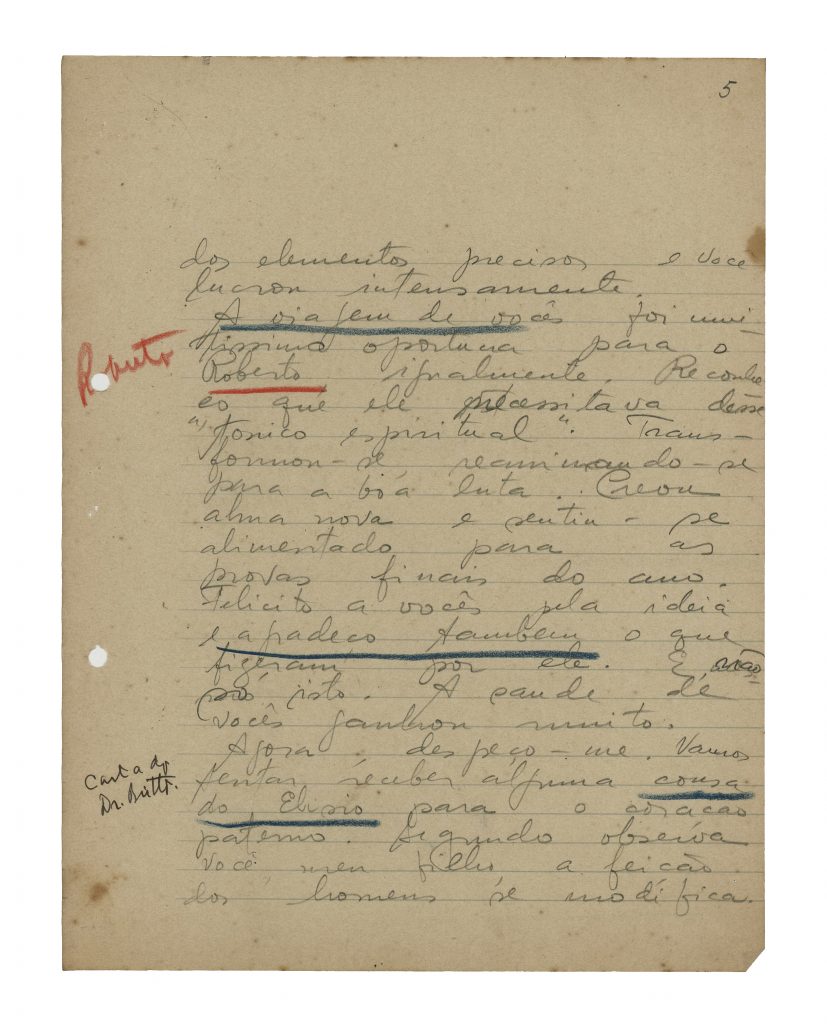 5
dos elementos precisos e voce
lucrou intensamente.
A viagem de vocês foi mui-
tissimo oportuna para o
Roberto
Roberto igualmente. Reconhe
ço que ele necessitava dêsse
"tonico espiritual". Trans-
formou-se reanimando-se
para a bôa luta. Creou
alma nova e sentiu-se
alimentado para as
provas finais do ano.
Felicito a vocês pela ideia
e agradeço tambem o que
fizeram por ele. E não
só isto. A saude de
vocês ganhou muito.
Agora, despeço-me. Vamos
tentar receber alguma cousa
Carta do
Dr. Britto.
do Elisio para o coração
paterno. Segundo observa
você, meu filho, a feicão
dos homens se modifica.